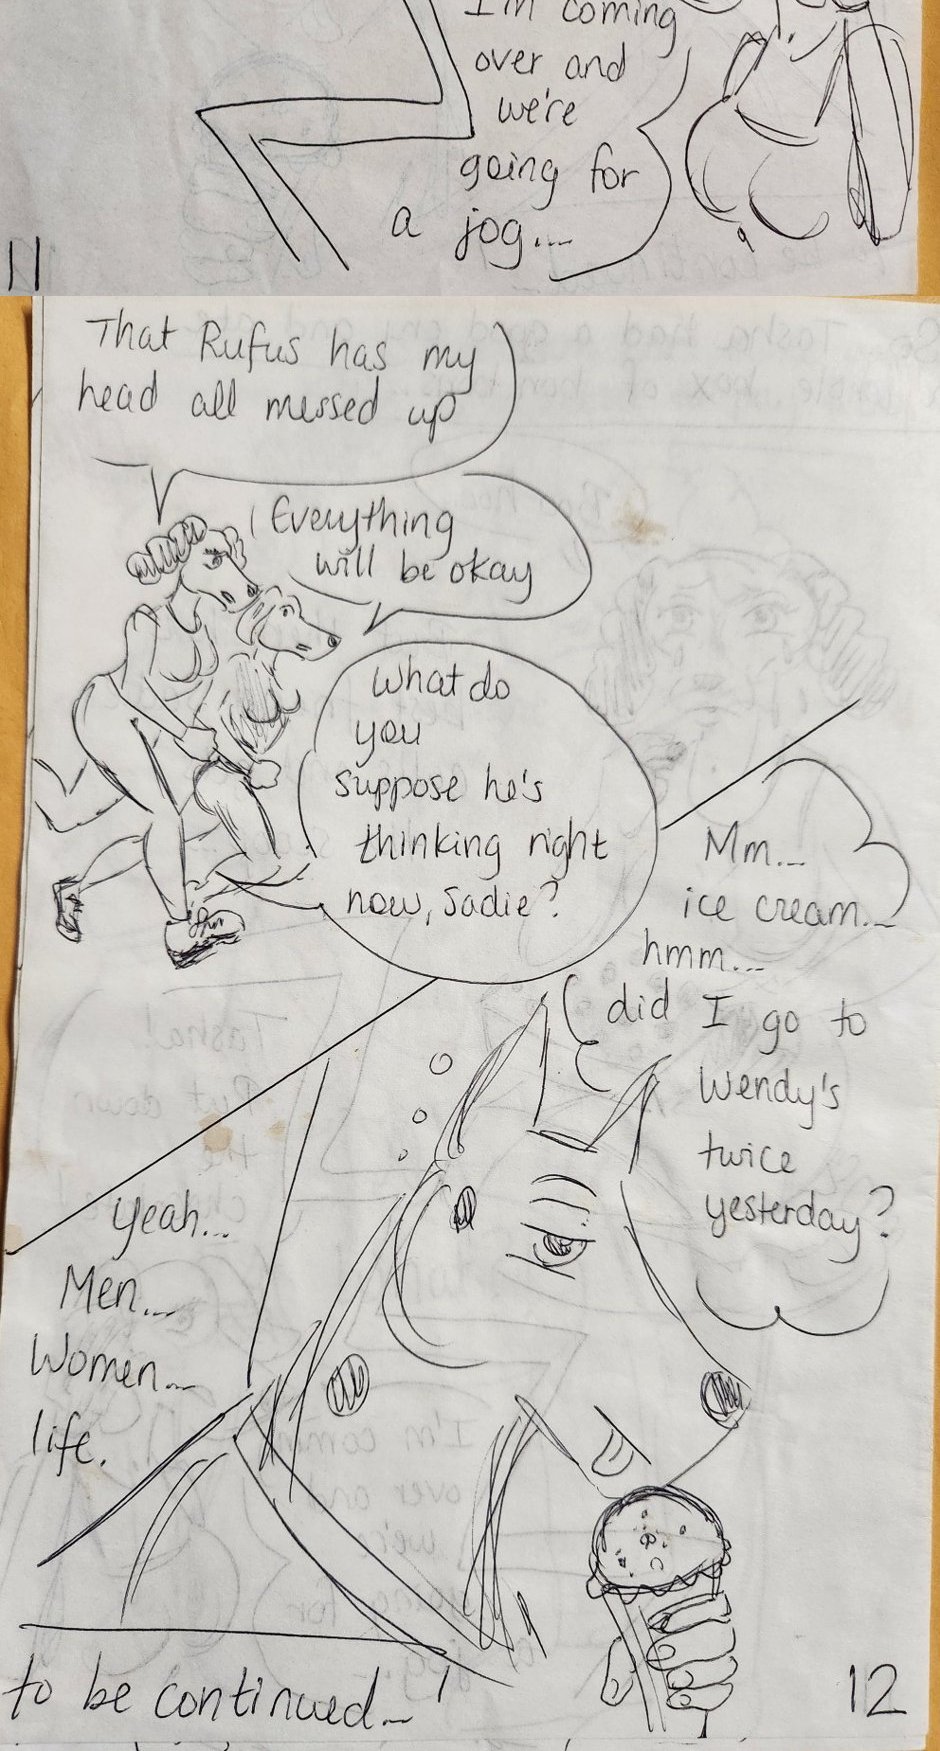 I'm coming
over and
we're
going for
a jog...
11
That Rufus has my
head all messed up
Everything
will be okay
What do
you
suppose he's
thinking right
now, Sadie?
Mm...
ice cream...
hmm...
did I go to
Wendy's
twice
yesterday?
Yeah...
Men...
Women...
life.
to be continued...
12